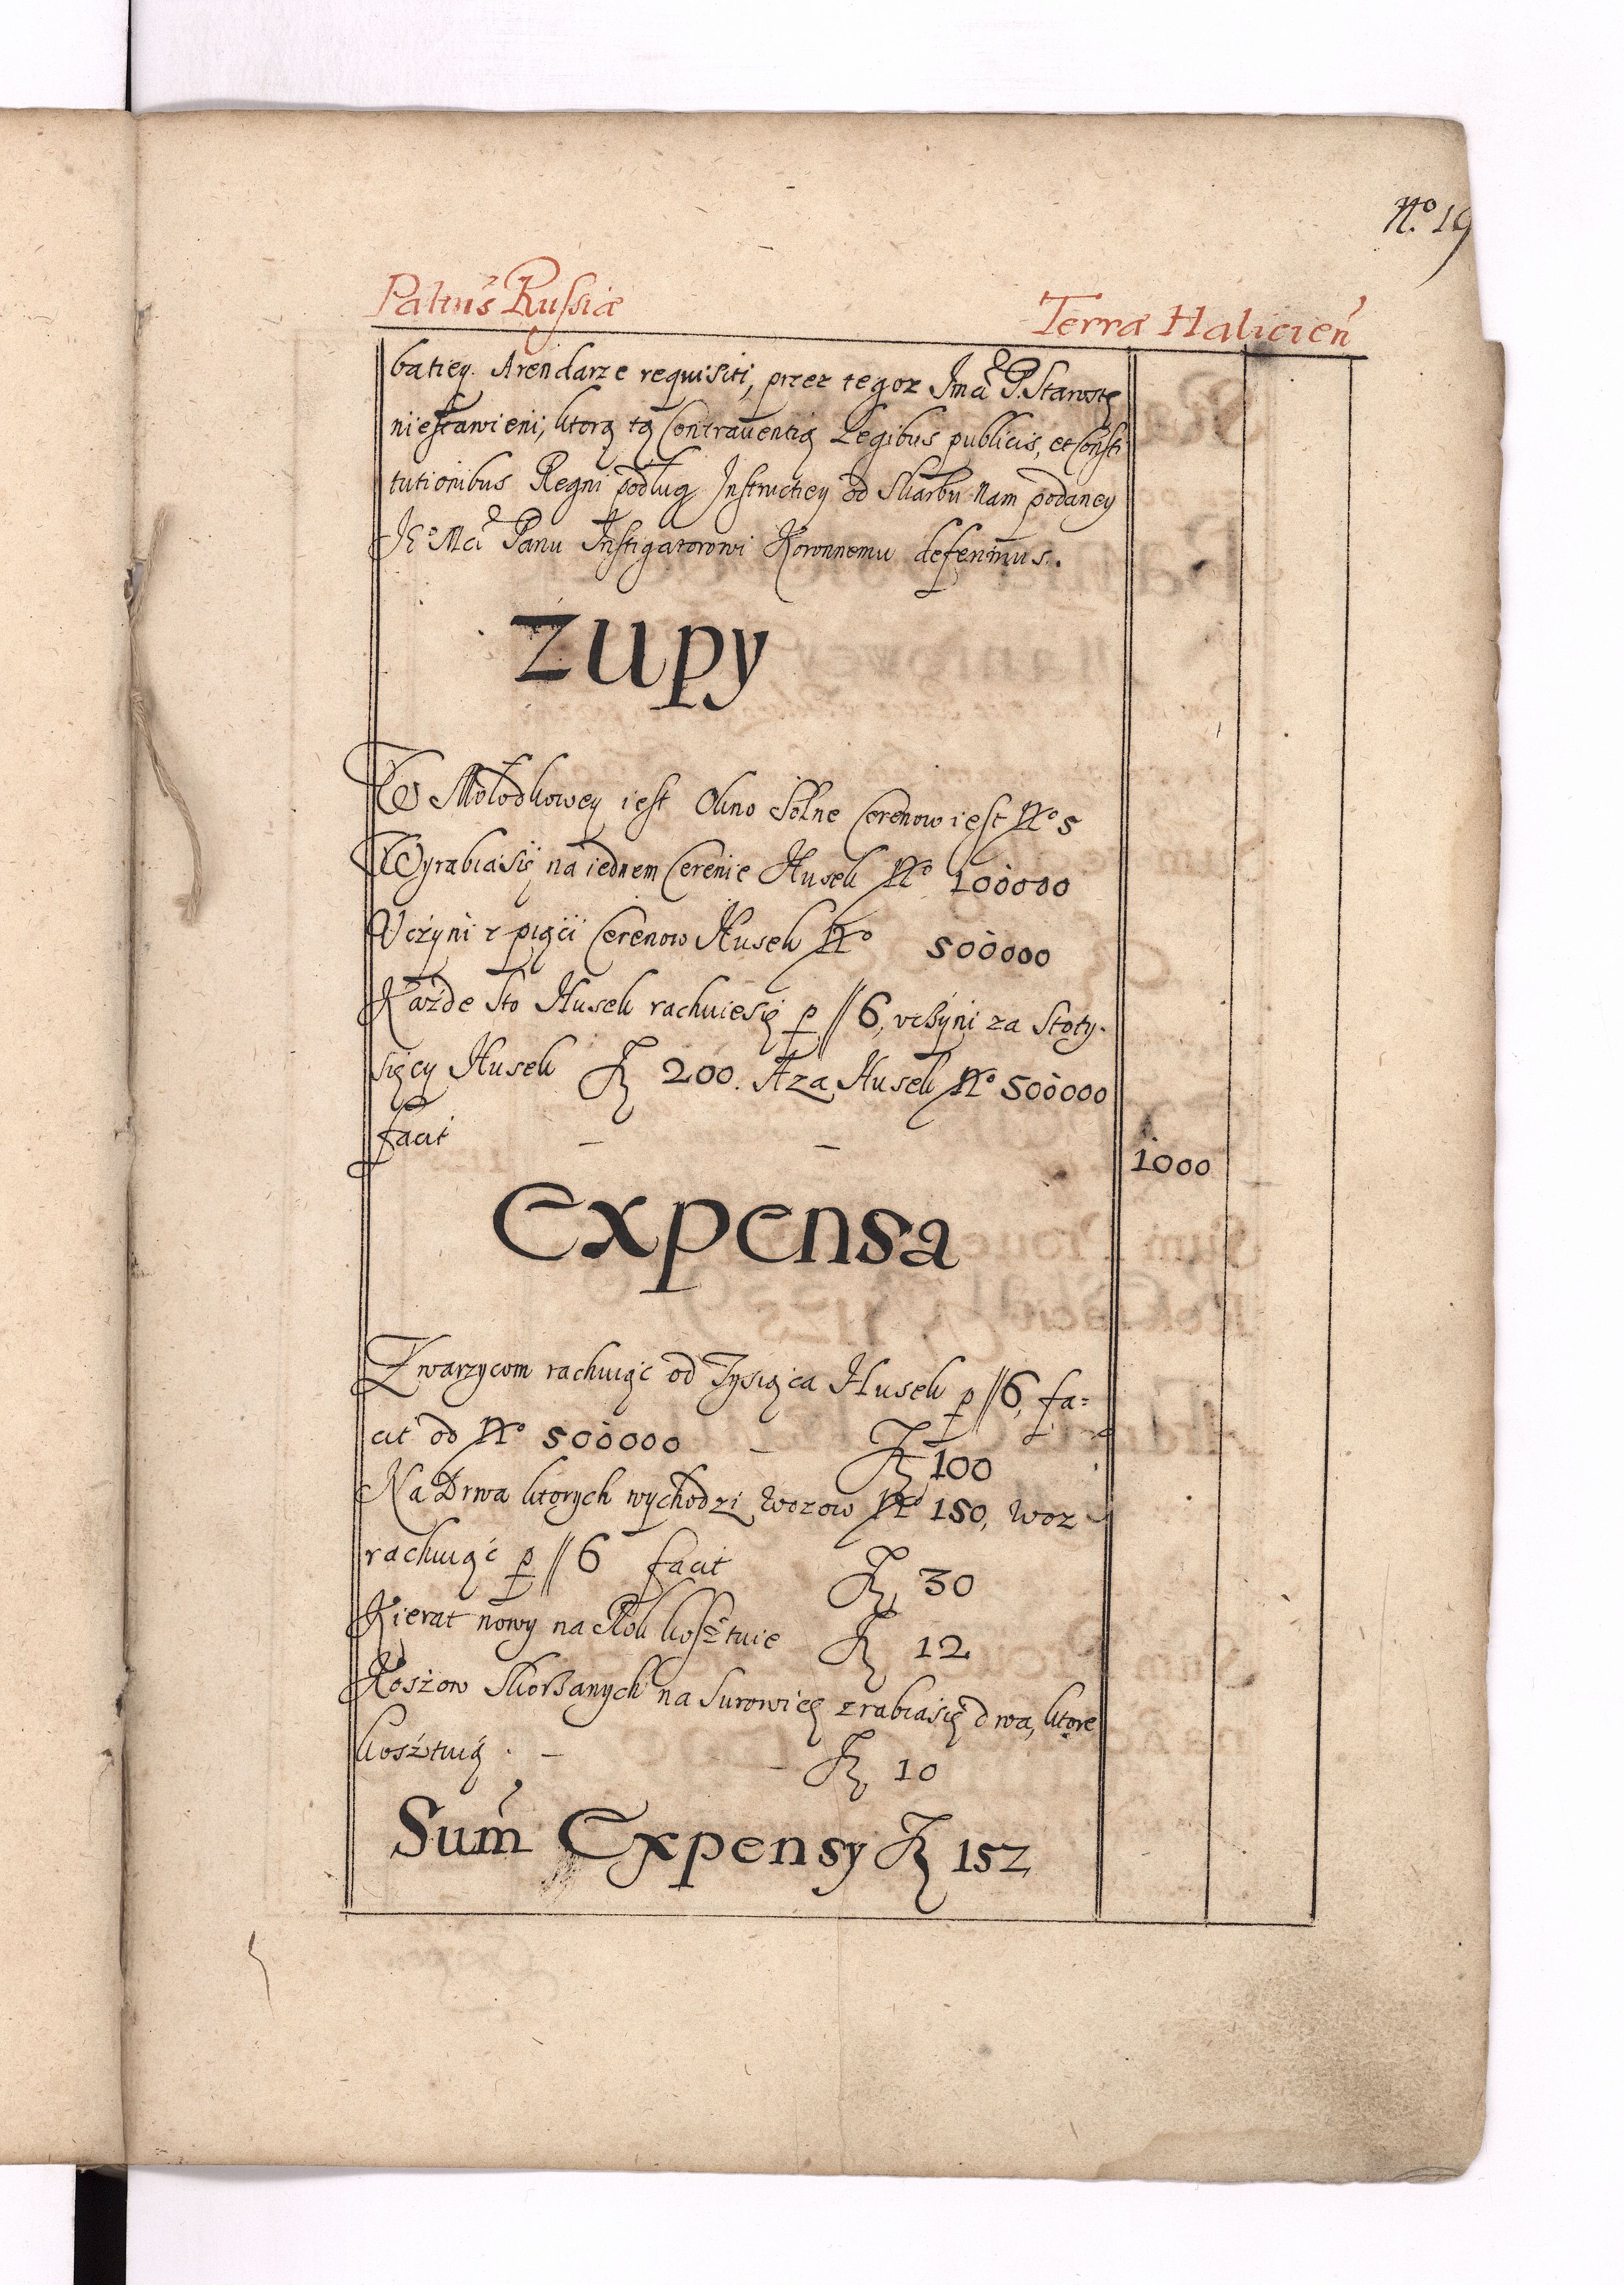 No. 19
Palatnûs Russiæ
Terræ Halicien̄
batiey. Arendarze requisiti, przez tegoz Jmci P. Starostę
niestawieni, ktorą tą Contrauentią Legibus publicis, et Consti
tutionibus Regni podług Instructiey od Skarbu nam podaney
Je⁰ Mci Panu Instigatorowi Koronnemu deferimus.
żupy
W Mołodkowey iest Okno Solne Cerenow iest No 5
Wyrabiasię na iednem Cerenie Husek No 100000
Vczyni z pięci Cerenow Husek No 500000
Każde Sto Husek rachuiesię p // 6, vcżyni za Stoty-
sięcy Husek Fl 200. A za Husek No 500000
facit — — 1000
Expensa
Zwarzycom rachuiąc od Tysiąca Husek p // 6, fa=
cit od No 500000 — Fl 100
Na Drwa ktorych wychodzi wozow No 150, woz
rachuiąć p // 6 facit Fl 30
Kierat nowy na Rok kosztuie Fl 12
Koszow Skorzanych na Surowicę zrabiasię dwa, ktore
kosztuią. — — Fl 10
Sum̄ Expensy Fl 152